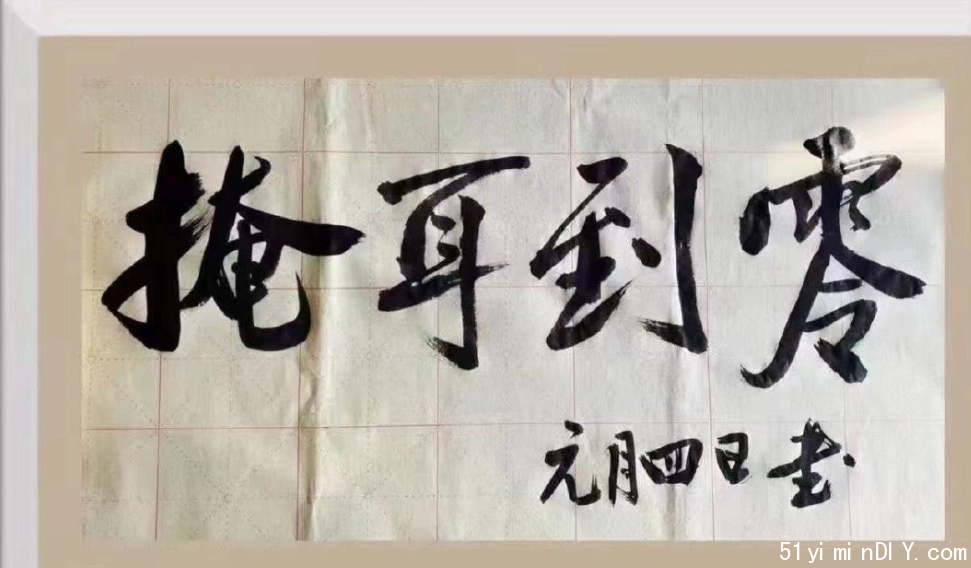 掩耳到零
元月四日书
51yiminDIY.com